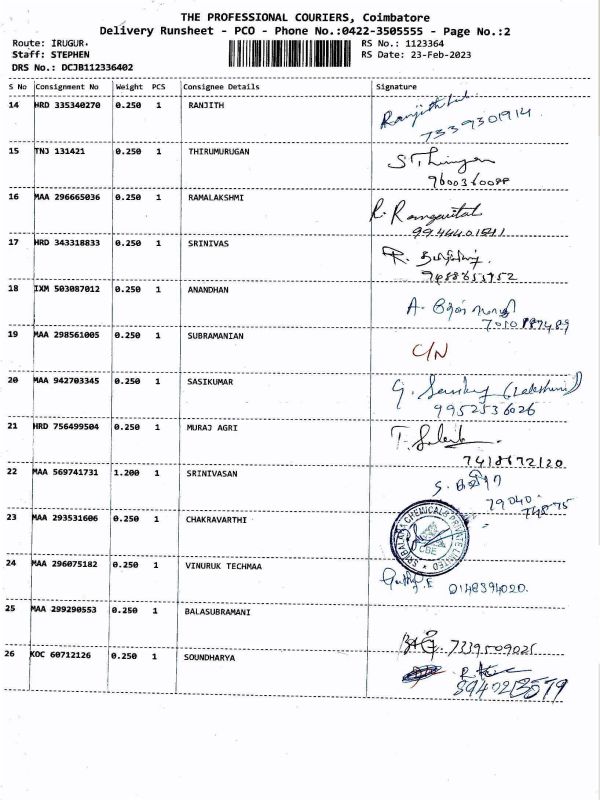 THE PROFESSIONAL COURIERS, Coimbatore
Delivery Runsheet - PCO - Phone No.:0422-3505555 - Page No.:2
Route: IRUGUR. RS No.: 1123364
Staff: STEPHEN RS Date: 23-Feb-2023
DRS No.: DCJB112336402
S No Consignment No Weight PCS Consignee Details Signature
14 HRD 335340270 0.250 1 RANJITH
7339301914
15 TNJ 131421 0.250 1 THIRUMURUGAN
16 MAA 296665036 0.250 1 RAMALAKSHMI
17 HRD 343318833 0.250 1 SRINIVAS
18 IXM 503087012 0.250 1 ANANDHAN
19 MAA 298561005 0.250 1 SUBRAMANIAN
C/N
20 MAA 942703345 0.250 1 SASIKUMAR
9952536026
21 HRD 756499504 0.250 1 MURAJ AGRI
22 MAA 569741731 1.200 1 SRINIVASAN
23 MAA 293531606 0.250 1 CHAKRAVARTHI
CHEMICALS PRIVATE LIMITED
CBE
24 MAA 296075182 0.250 1 VINURUK TECHMAA
25 MAA 299290553 0.250 1 BALASUBRAMANI
7339509025
26 KOC 60712126 0.250 1 SOUNDHARYA